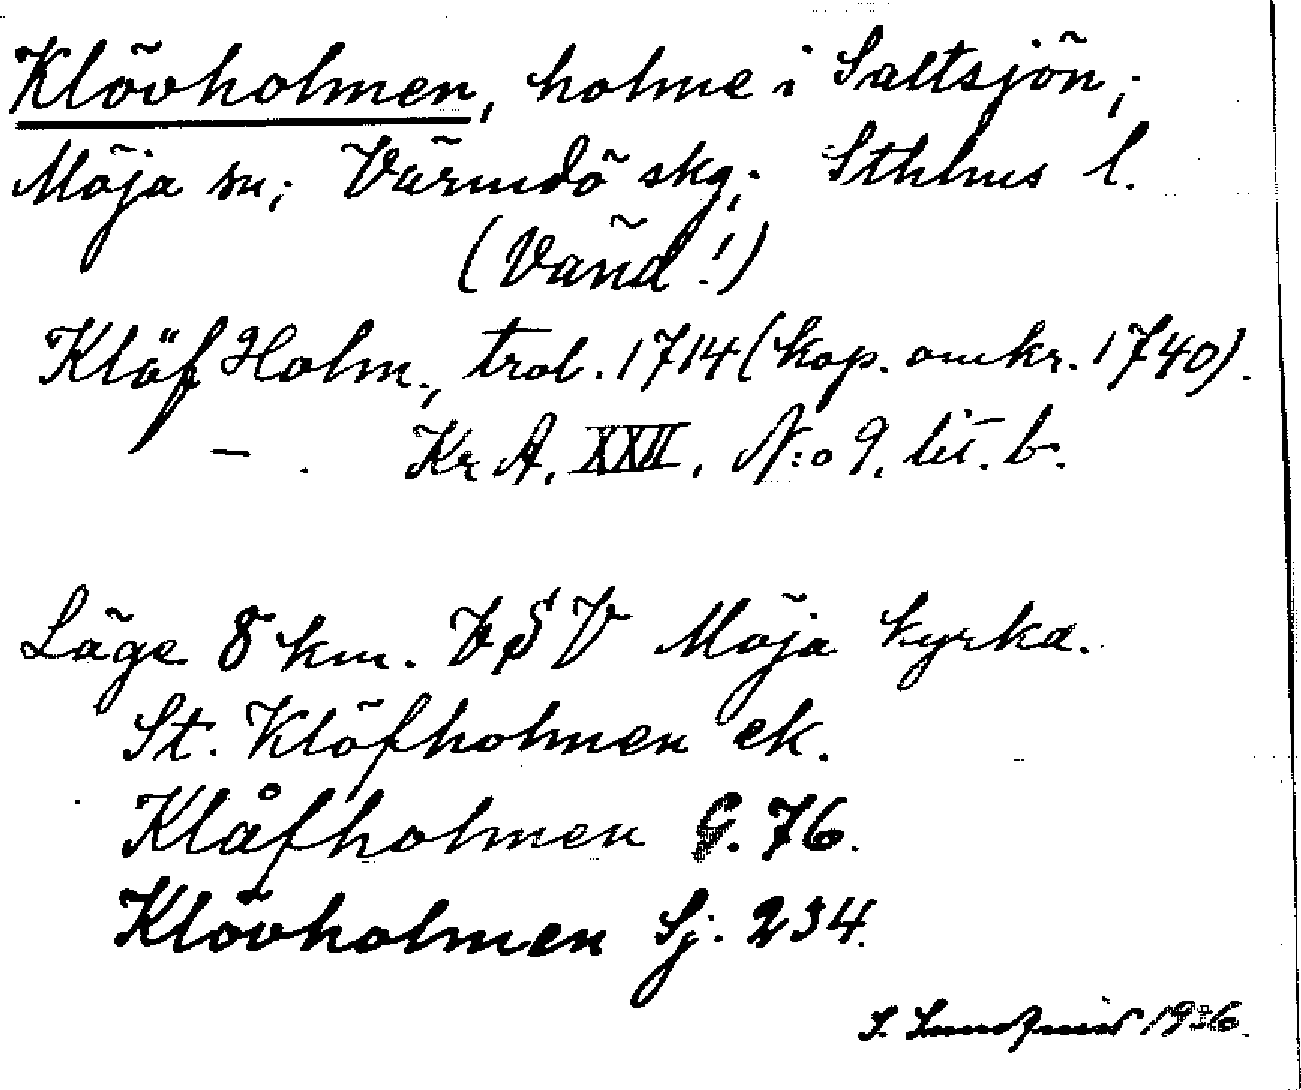 Klövholmen, holme i Saltsjön;
Möja sn; Värmdö skg; Sthlms l.
(Vänd!)
Klöf Holm., trol. 1714 (kop. omkr. 1740).
– . Kr A. XXII, N:o 9. lit. b.
Läge 8 km. VSV Möja kyrka.
St. Klöfholmen ek.
Klåfholmen G. 76.
Klövholmen Sj. 234.
S. Lundqvist 1936.